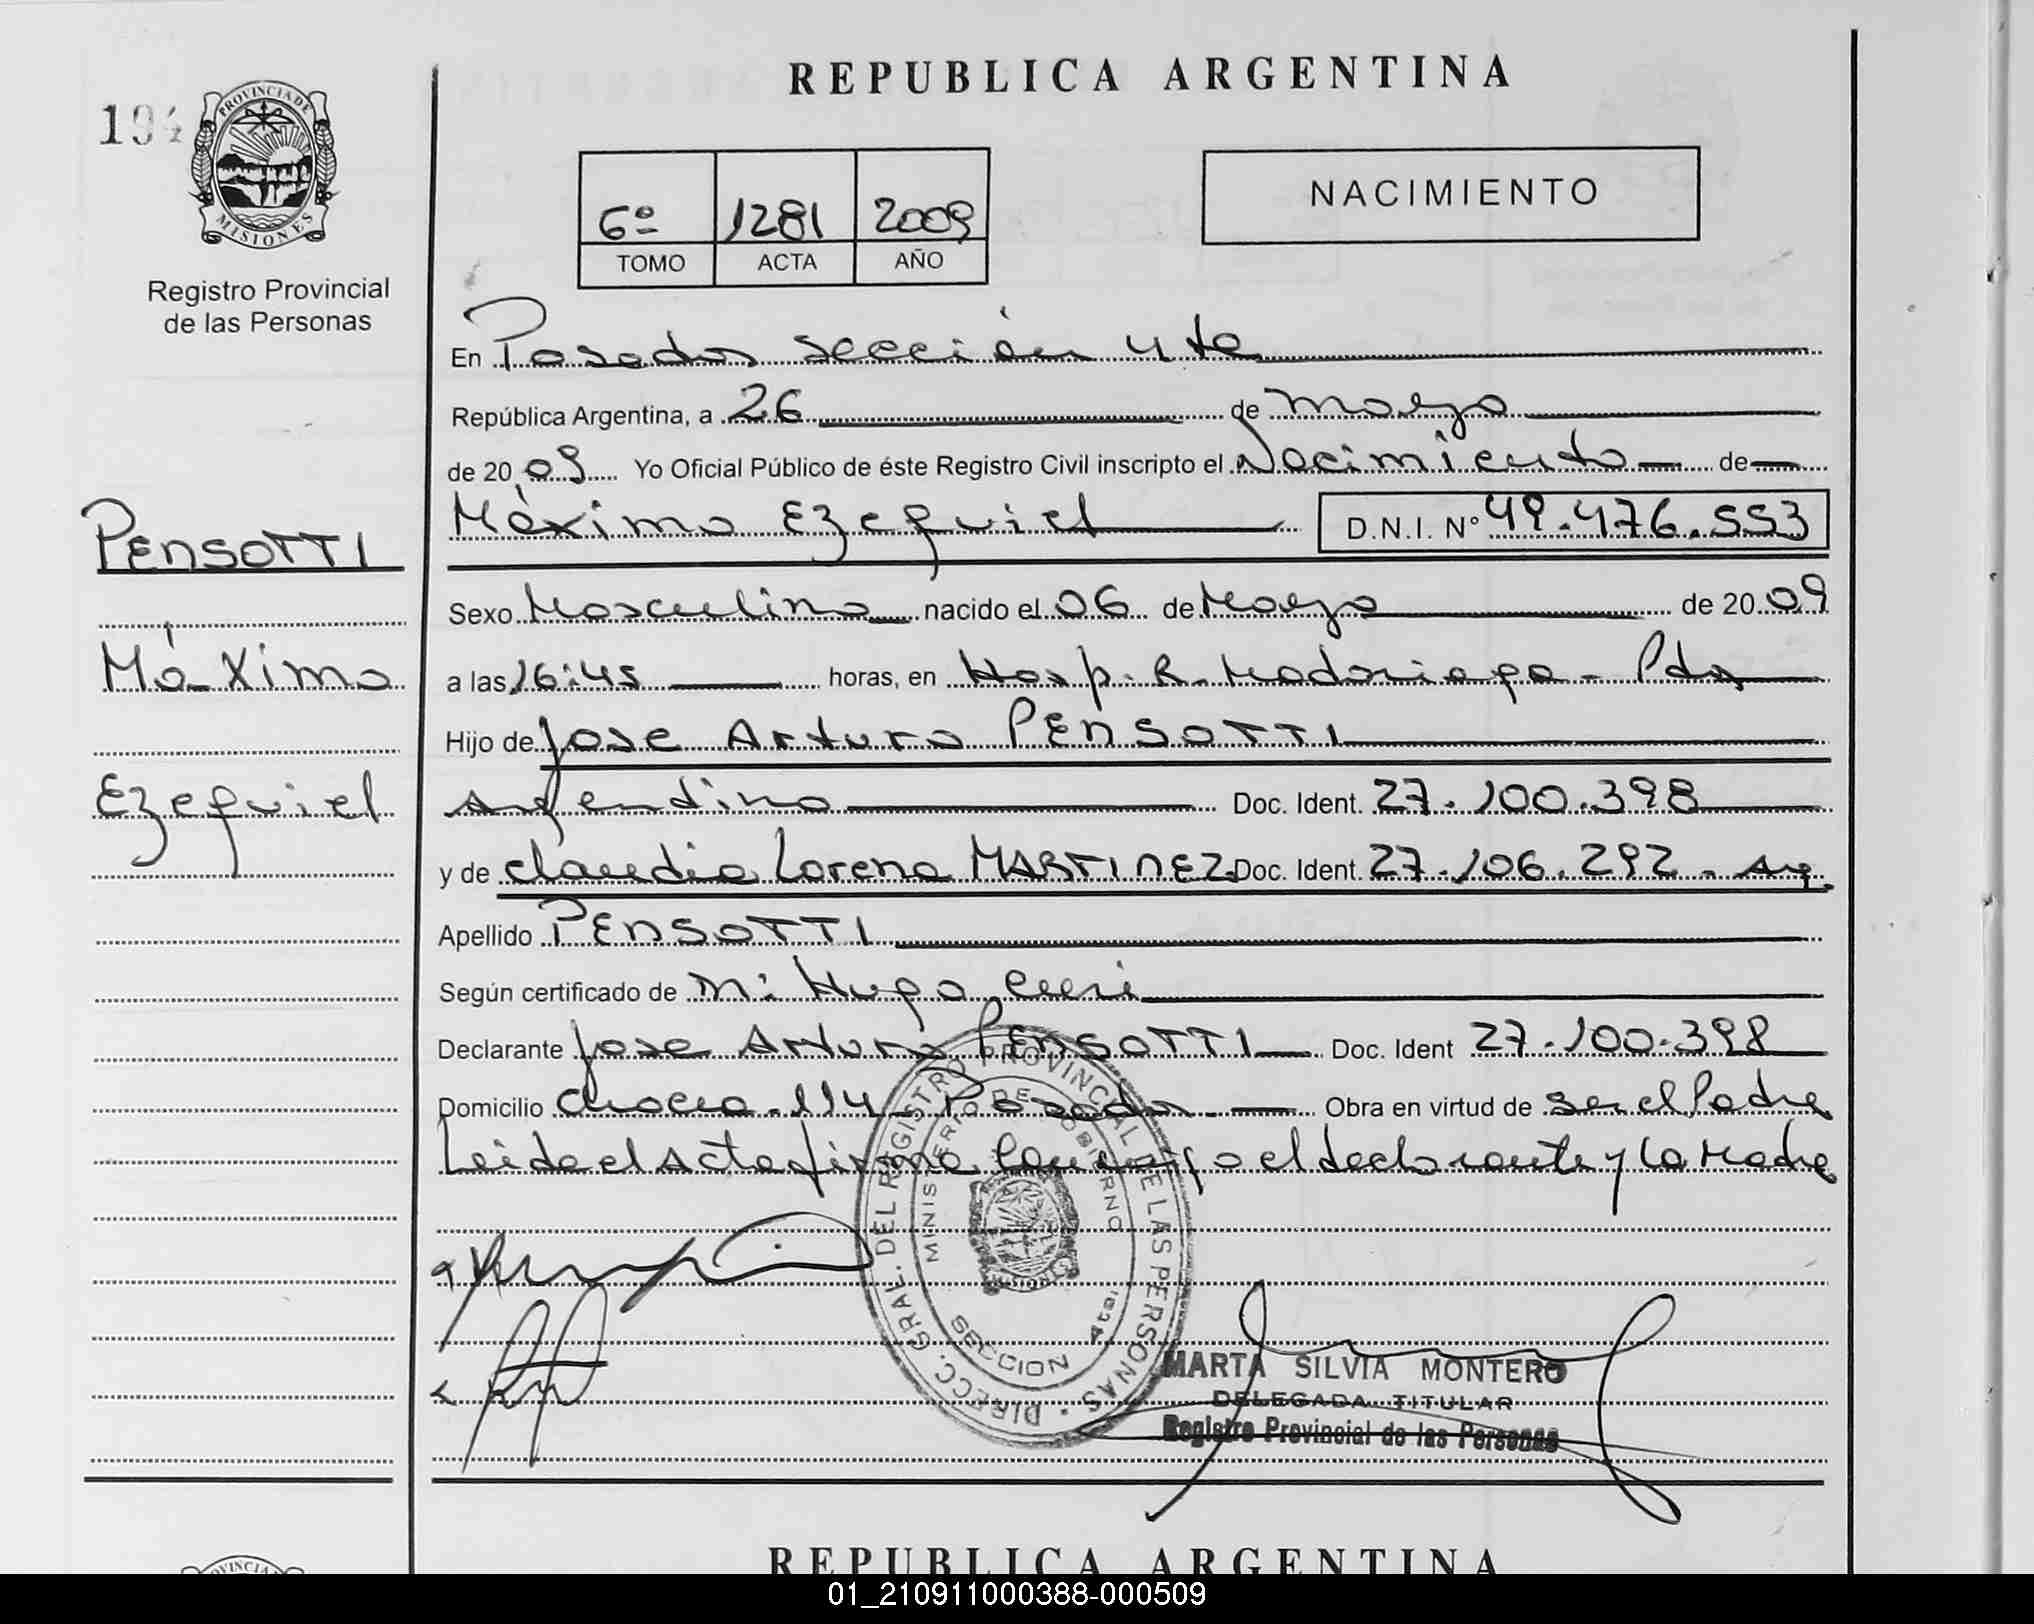 REPUBLICA ARGENTINA
194
PROVINCIA DE
MISIONES
Registro Provincial
de las Personas
6º 1281 2009
TOMO ACTA AÑO
NACIMIENTO
En Posadas sección 4ta
República Argentina, a 26 de mayo
de 20 09 Yo Oficial Público de éste Registro Civil inscripto el Nacimiento de
Máximo Ezequiel D.N.I. Nº 49.476.553
PENSOTTI
Máximo
Ezequiel
Sexo Masculino nacido el 06 de Mayo de 20 09
a las 16:45 horas, en Hosp. R. Madariaga - Pdas
Hijo de Jose Arturo PENSOTTI
Argentino Doc. Ident. 27.100.398
y de Claudia Lorena MARTINEZ Doc. Ident. 27.106.292 - Arg.
Apellido PENSOTTI
Según certificado de M: Hugo
Declarante Jose Arturo PENSOTTI Doc. Ident 27.100.398
Domicilio 114 - Posadas. Obra en virtud de ser el Padre
Leida el Acta firma conmigo el declarante y la Madre
DIRECC. GRAL. DEL REGISTRO PROVINCIAL DE LAS PERSONAS
MINISTERIO DE GOBIERNO
SECCION 4ta.
MARTA SILVIA MONTERO
DELEGADA TITULAR
Registro Provincial de las Personas
REPUBLICA ARGENTINA
01_210911000388-000509